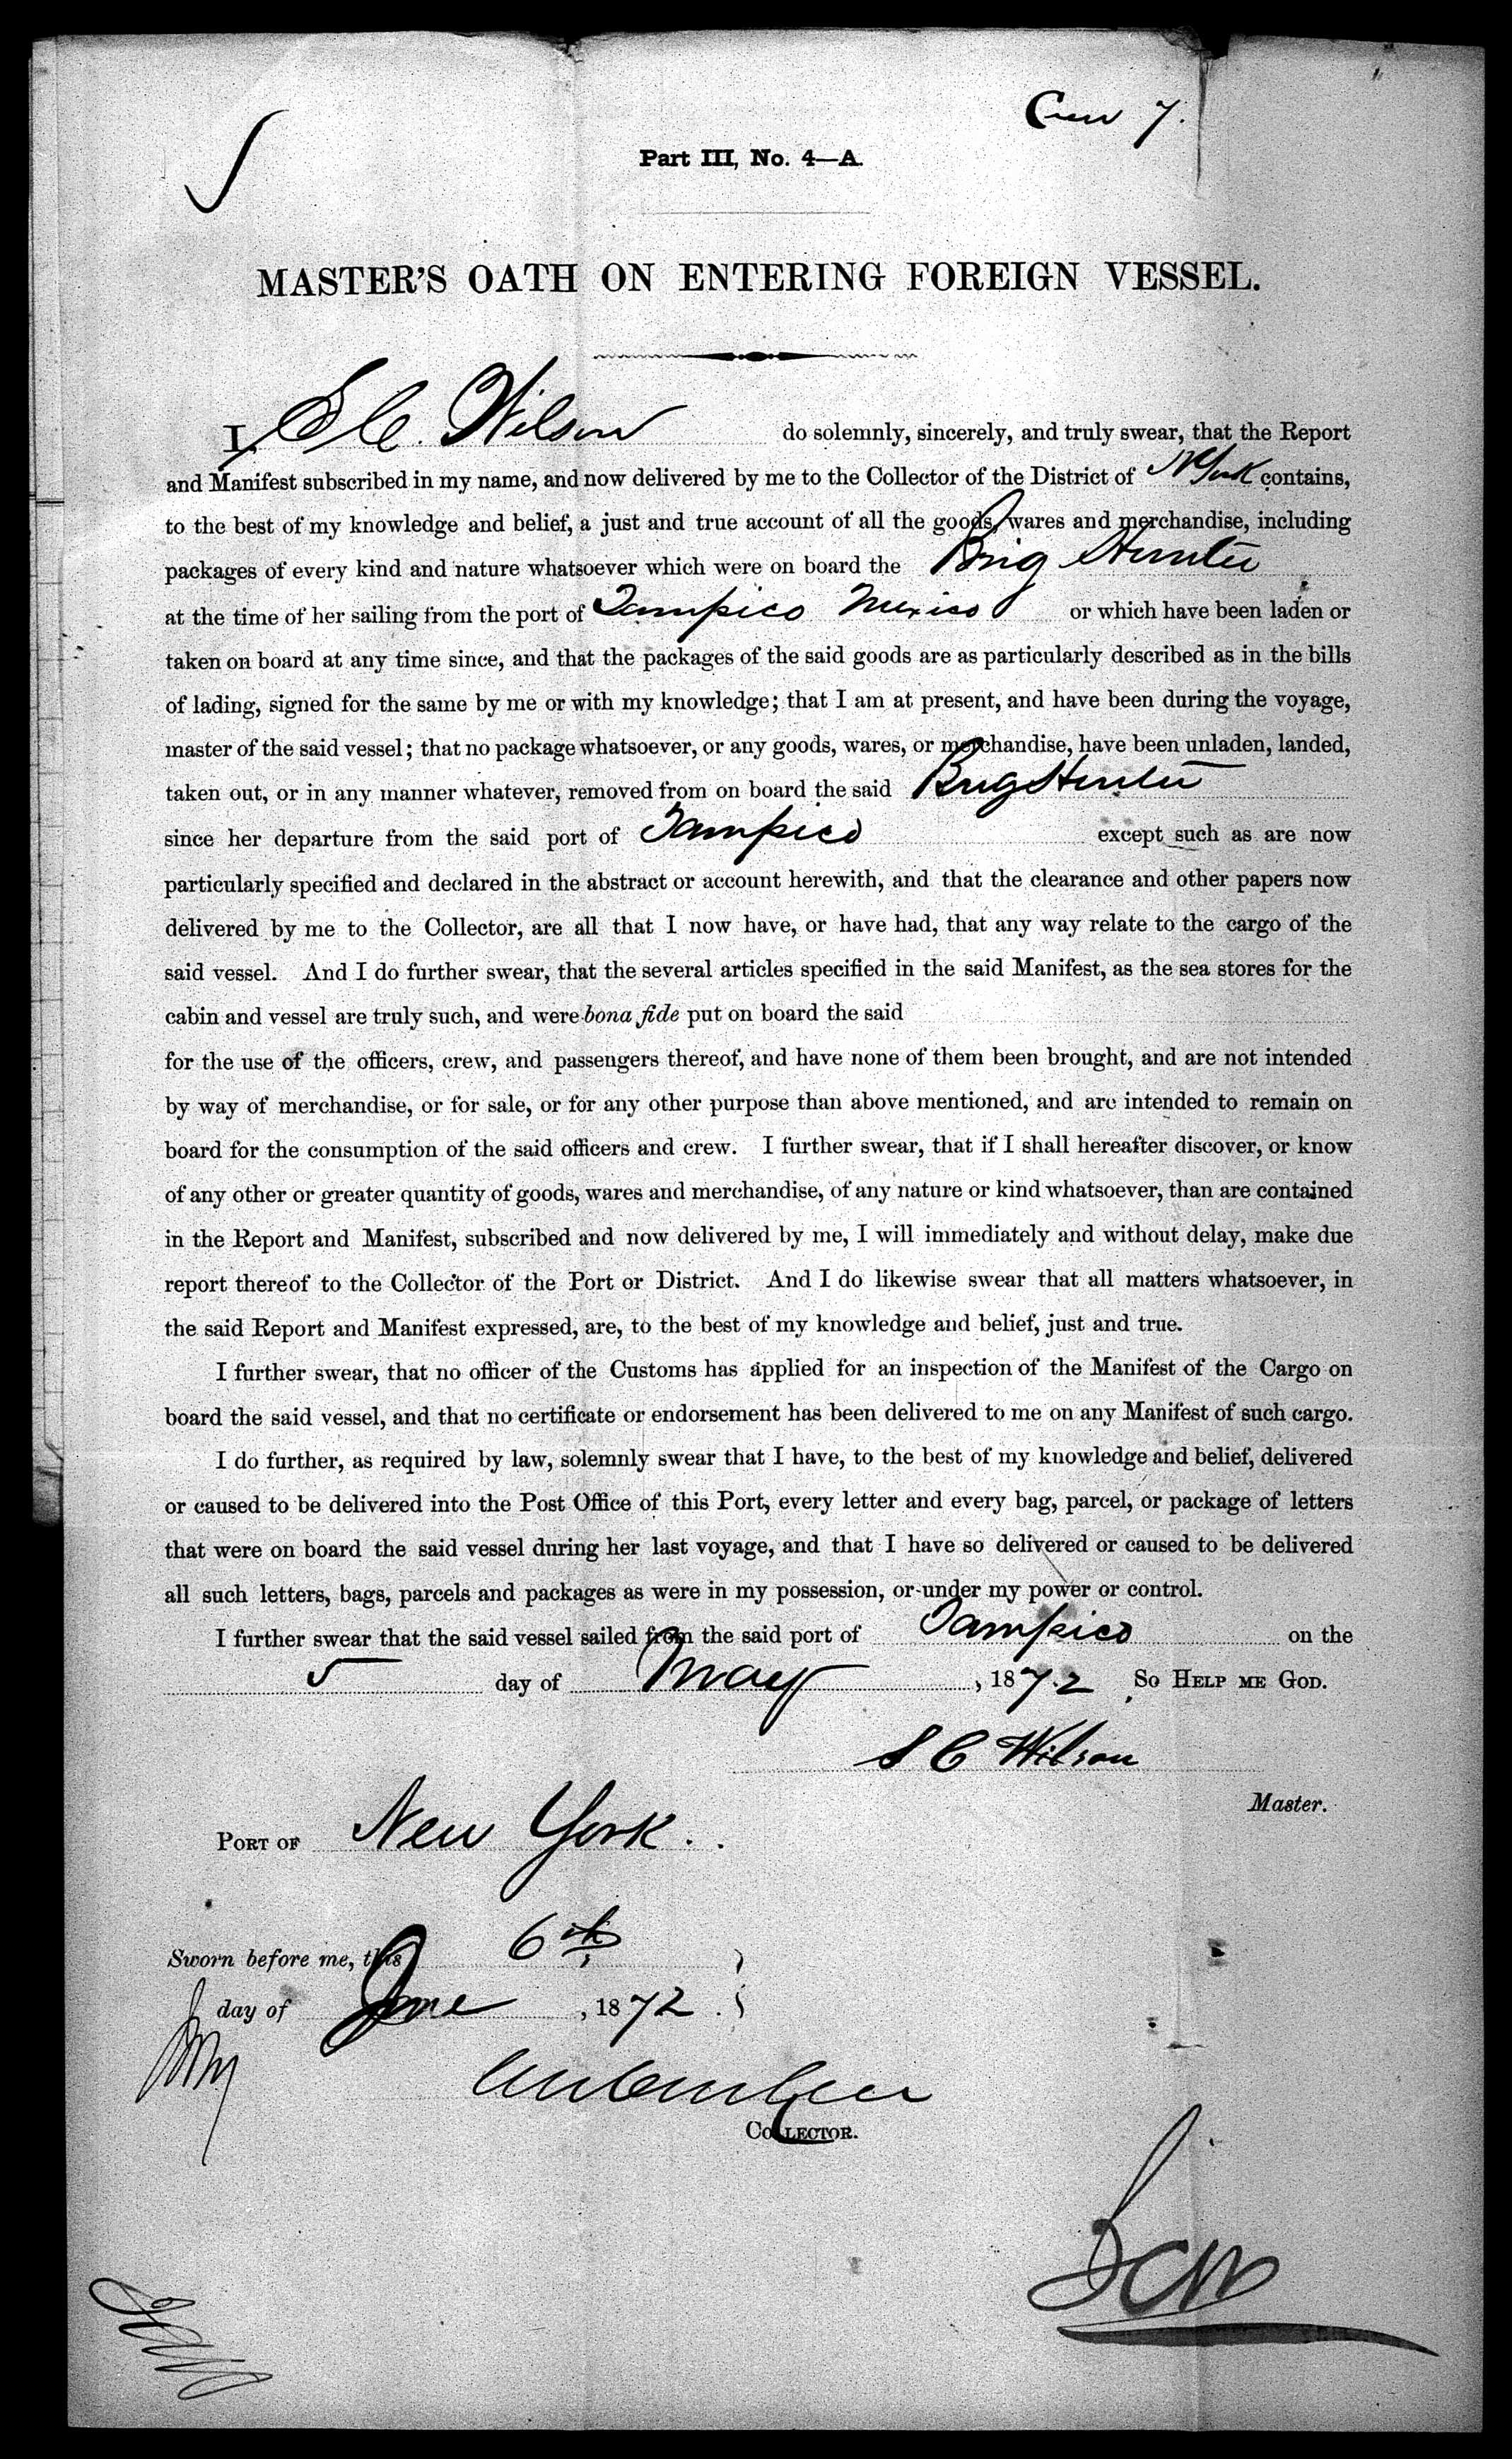 Crew 7.
Part III, No. 4—A.
MASTER'S OATH ON ENTERING FOREIGN VESSEL.
I, S C. Wilson do solemnly, sincerely, and truly swear, that the Report
and Manifest subscribed in my name, and now delivered by me to the Collector of the District of N York contains,
to the best of my knowledge and belief, a just and true account of all the goods, wares and merchandise, including
packages of every kind and nature whatsoever which were on board the Brig Hunter
at the time of her sailing from the port of Tampico Mexico or which have been laden or
taken on board at any time since, and that the packages of the said goods are as particularly described as in the bills
of lading, signed for the same by me or with my knowledge; that I am at present, and have been during the voyage,
master of the said vessel; that no package whatsoever, or any goods, wares, or merchandise, have been unladen, landed,
taken out, or in any manner whatever, removed from on board the said Brig Hunter
since her departure from the said port of Tampico except such as are now
particularly specified and declared in the abstract or account herewith, and that the clearance and other papers now
delivered by me to the Collector, are all that I now have, or have had, that any way relate to the cargo of the
said vessel. And I do further swear, that the several articles specified in the said Manifest, as the sea stores for the
cabin and vessel are truly such, and were bona fide put on board the said
for the use of the officers, crew, and passengers thereof, and have none of them been brought, and are not intended
by way of merchandise, or for sale, or for any other purpose than above mentioned, and are intended to remain on
board for the consumption of the said officers and crew. I further swear, that if I shall hereafter discover, or know
of any other or greater quantity of goods, wares and merchandise, of any nature or kind whatsoever, than are contained
in the Report and Manifest, subscribed and now delivered by me, I will immediately and without delay, make due
report thereof to the Collector of the Port or District. And I do likewise swear that all matters whatsoever, in
the said Report and Manifest expressed, are, to the best of my knowledge and belief, just and true.
I further swear, that no officer of the Customs has applied for an inspection of the Manifest of the Cargo on
board the said vessel, and that no certificate or endorsement has been delivered to me on any Manifest of such cargo.
I do further, as required by law, solemnly swear that I have, to the best of my knowledge and belief, delivered
or caused to be delivered into the Post Office of this Port, every letter and every bag, parcel, or package of letters
that were on board the said vessel during her last voyage, and that I have so delivered or caused to be delivered
all such letters, bags, parcels and packages as were in my possession, or under my power or control.
I further swear that the said vessel sailed from the said port of Tampico on the
5 day of May, 1872 So Help me God.
S C Wilson
Master.
Port of New York.
Sworn before me, this 6th
day of June, 1872.
Collector.
SCW